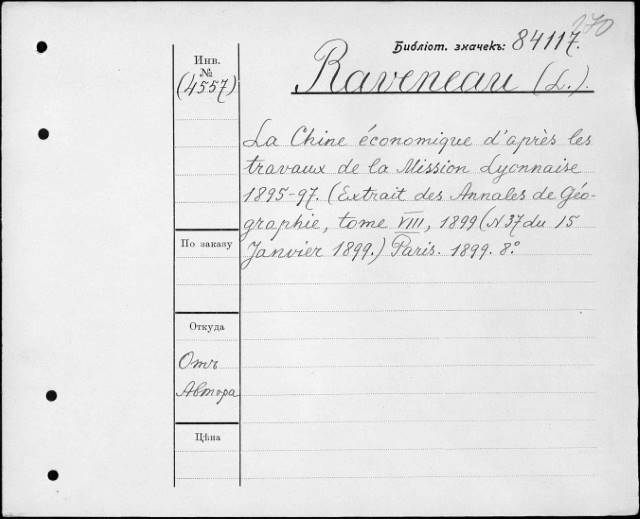 270
Библіот. значекъ: 84117.
Инв.
№
(4557)
Raveneau (L.).
La Chine économique d'après les
travaux de la Mission Lyonnaise
1895-97. (Extrait des Annales de Géo-
graphie, tome VIII, 1899 (N 37 du 15
Janvier 1899.) Paris. 1899. 8°.
По заказу
Откуда
Отъ
Автора
Цѣна